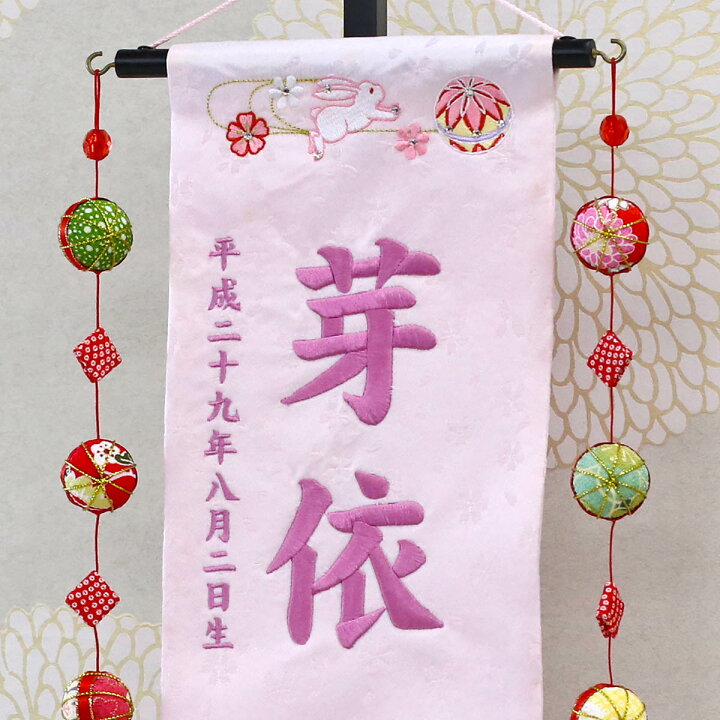 芽依
平成二十九年八月二日生